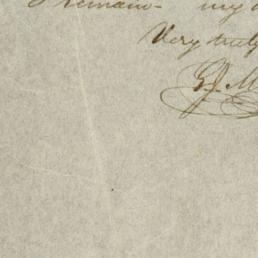 I remain - my d
Very truly
G. J. M